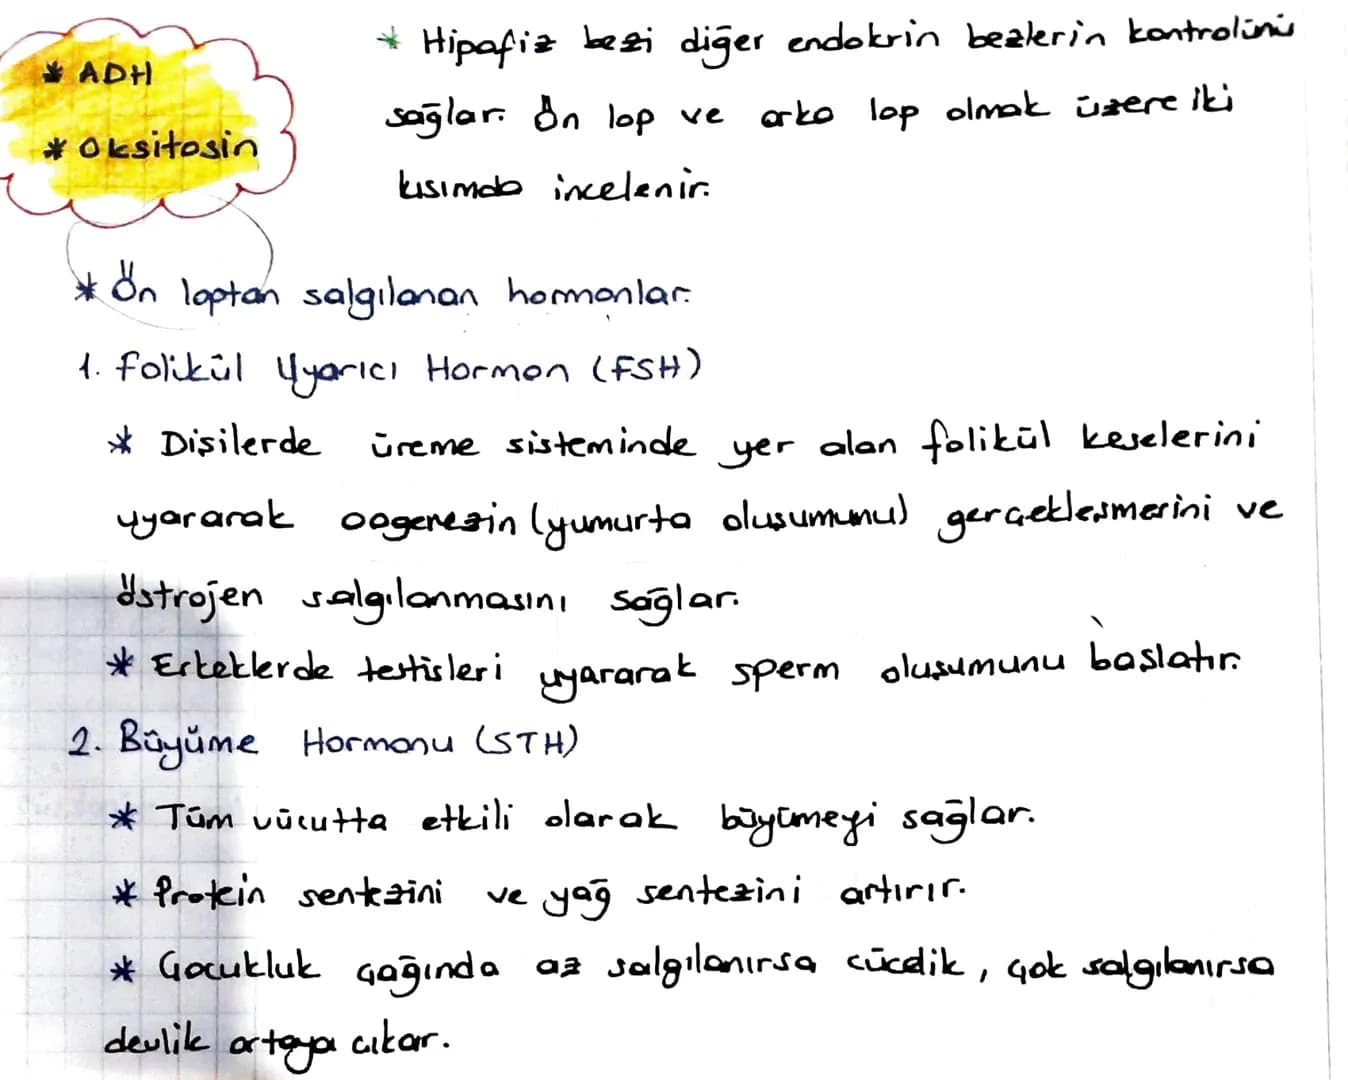 * ADH
* Oksitosin
* Hipofiz bezi diğer endokrin bezlerin kontrolünü
sağlar. Ön lop ve arka lop olmak üzere iki
kısımda incelenir.
* Ön loptan salgılanan hormonlar:
1. Folikül Uyarıcı Hormon (FSH)
* Dişilerde üreme sisteminde yer alan folikül keselerini
uyararak oogenezin (yumurta oluşumunu) gerçekleşmesini ve
östrojen salgılanmasını sağlar.
* Erkeklerde testisleri uyararak sperm oluşumunu başlatır.
2. Büyüme Hormonu (STH)
* Tüm vücutta etkili olarak büyümeyi sağlar.
* Protein sentezini ve yağ sentezini artırır.
* Çocukluk çağında az salgılanırsa cücelik, çok salgılanırsa
devlik ortaya çıkar.